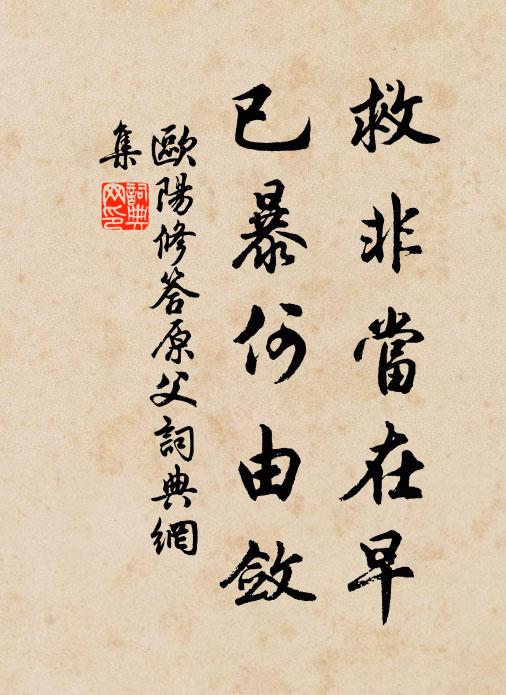 救非當在早
已暴何由斂
歐陽修答原父詞典網
集
詞典網印